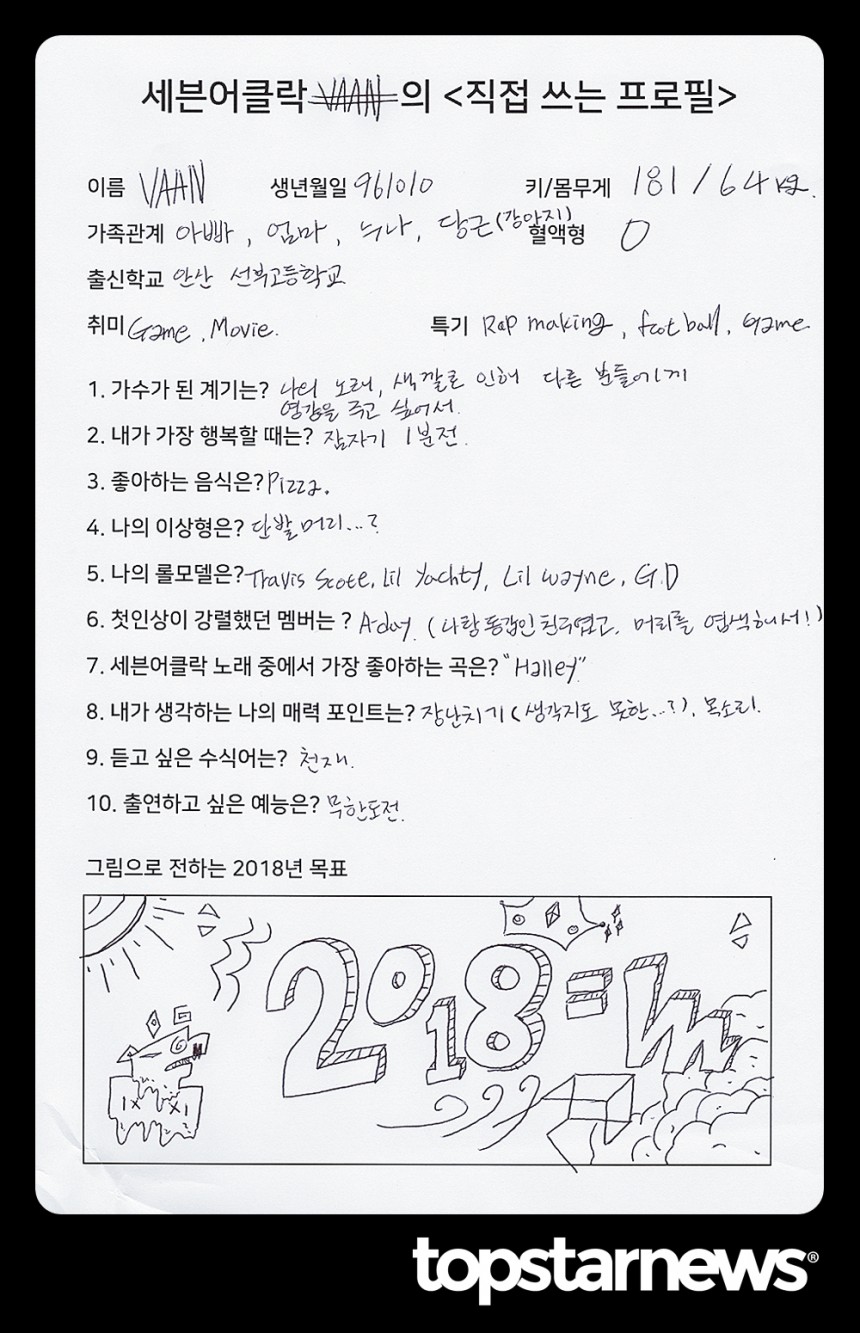 세븐어클락 VAAN의 <직접 쓰는 프로필>
이름 VAAN 생년월일 961010 키/몸무게 181 / 64 kg.
가족관계 아빠, 엄마, 누나, 당근(강아지) 혈액형 O
출신학교 안산 선부고등학교
취미 Game, Movie. 특기 Rap making, football, Game
1. 가수가 된 계기는? 나의 노래, 색깔로 인해 다른 분들에게
영감을 주고 싶어서.
2. 내가 가장 행복할 때는? 잠자기 1분전.
3. 좋아하는 음식은? Pizza.
4. 나의 이상형은? 단발머리...?
5. 나의 롤모델은? Travis Scott, Lil Yachty, Lil wayne, G.D
6. 첫인상이 강렬했던 멤버는 ? A-day. (나랑 동갑인 친구였고, 머리를 염색해서!)
7. 세븐어클락 노래 중에서 가장 좋아하는 곡은? "Halley"
8. 내가 생각하는 나의 매력 포인트는? 장난치기 (생각지도 못한...?), 목소리.
9. 듣고 싶은 수식어는? 천재.
10. 출연하고 싶은 예능은? 무한도전.
그림으로 전하는 2018년 목표
2018=
topstarnews®